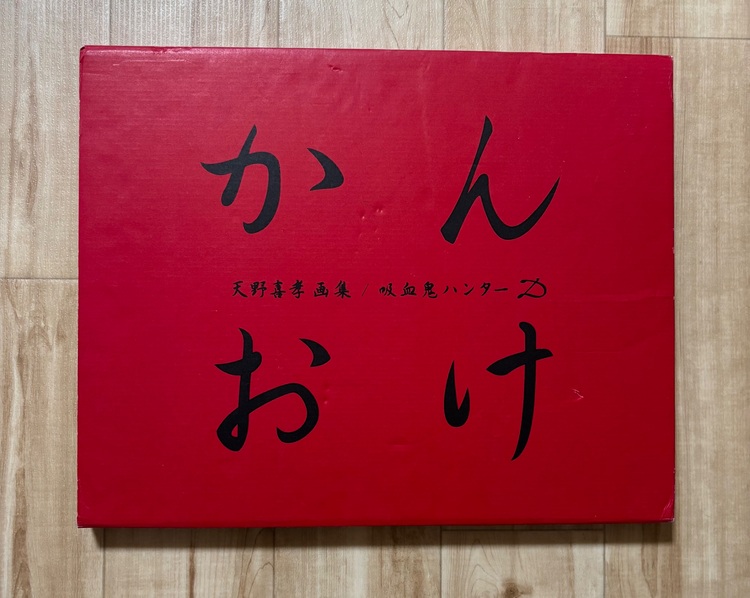 かん
天野喜孝画集／吸血鬼ハンターD
おけ